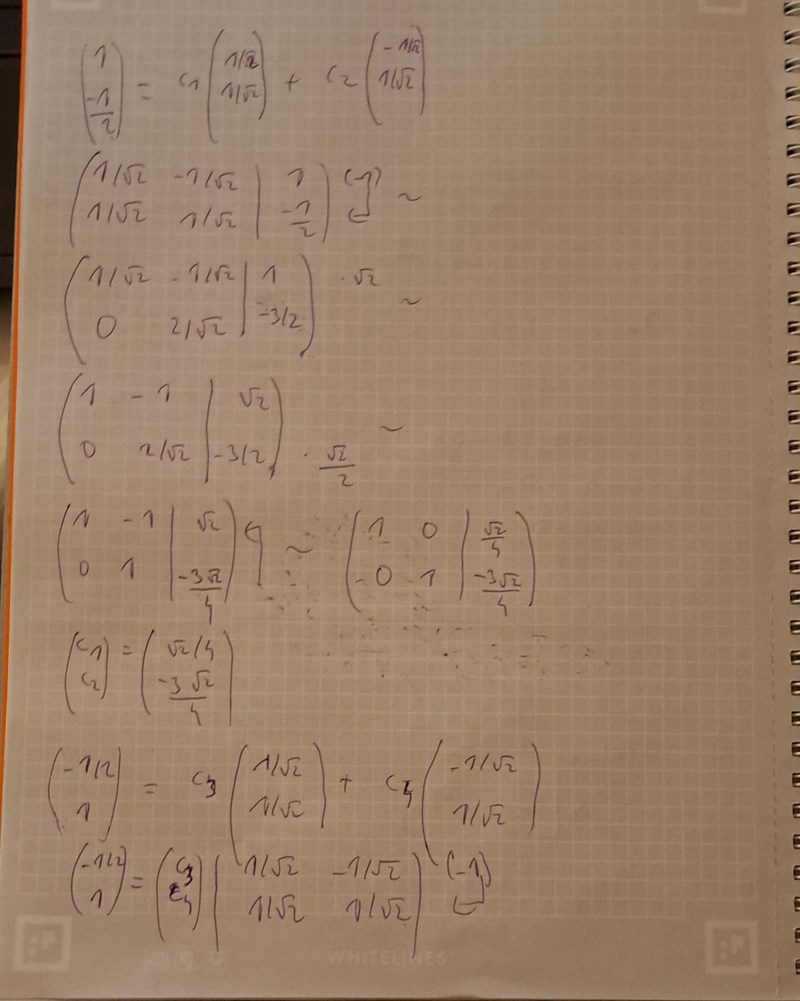 (1, -1/2) = c1 (1/√2, 1/√2) + c2 (-1/√2, 1/√2)
(1/√2 -1/√2 | 1) (-1)
(1/√2 1/√2 | -1/2) ~
(1/√2 -1/√2 | 1) · √2
(0 2/√2 | -3/2) ~
(1 -1 | √2)
(0 2/√2 | -3/2) · √2/2 ~
(1 -1 | √2) ~ (1 0 | √2/4)
(0 1 | -3√2/4) (0 1 | -3√2/4)
(c1, c2) = (√2/4, -3√2/4)
(-1/2, 1) = c3 (1/√2, 1/√2) + c4 (-1/√2, 1/√2)
(-1/2, 1) = (c3, c4) (1/√2 -1/√2) (-1)
(1/√2 1/√2)
WHITELINES